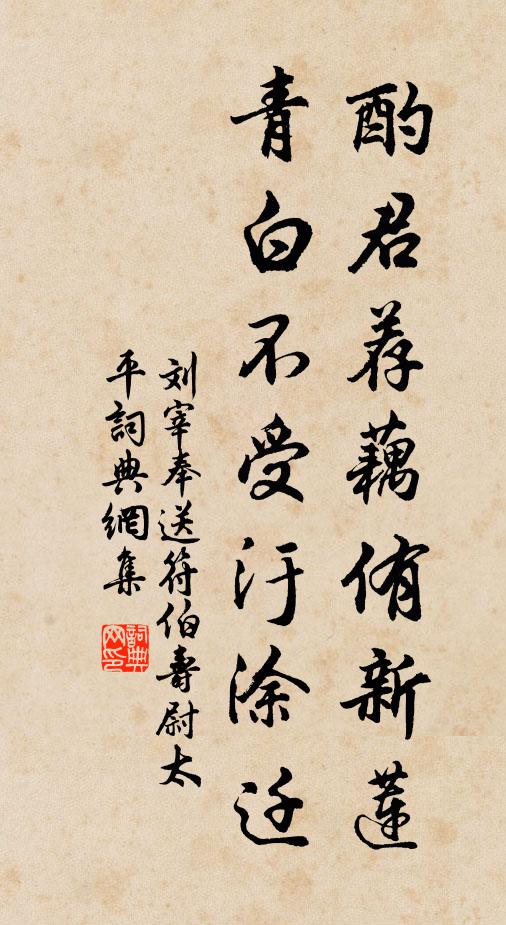 酌君荐藕侑新莲
青白不受汙涂迁
刘宰奉送符伯壽尉太
平詞典網集
詞典網印